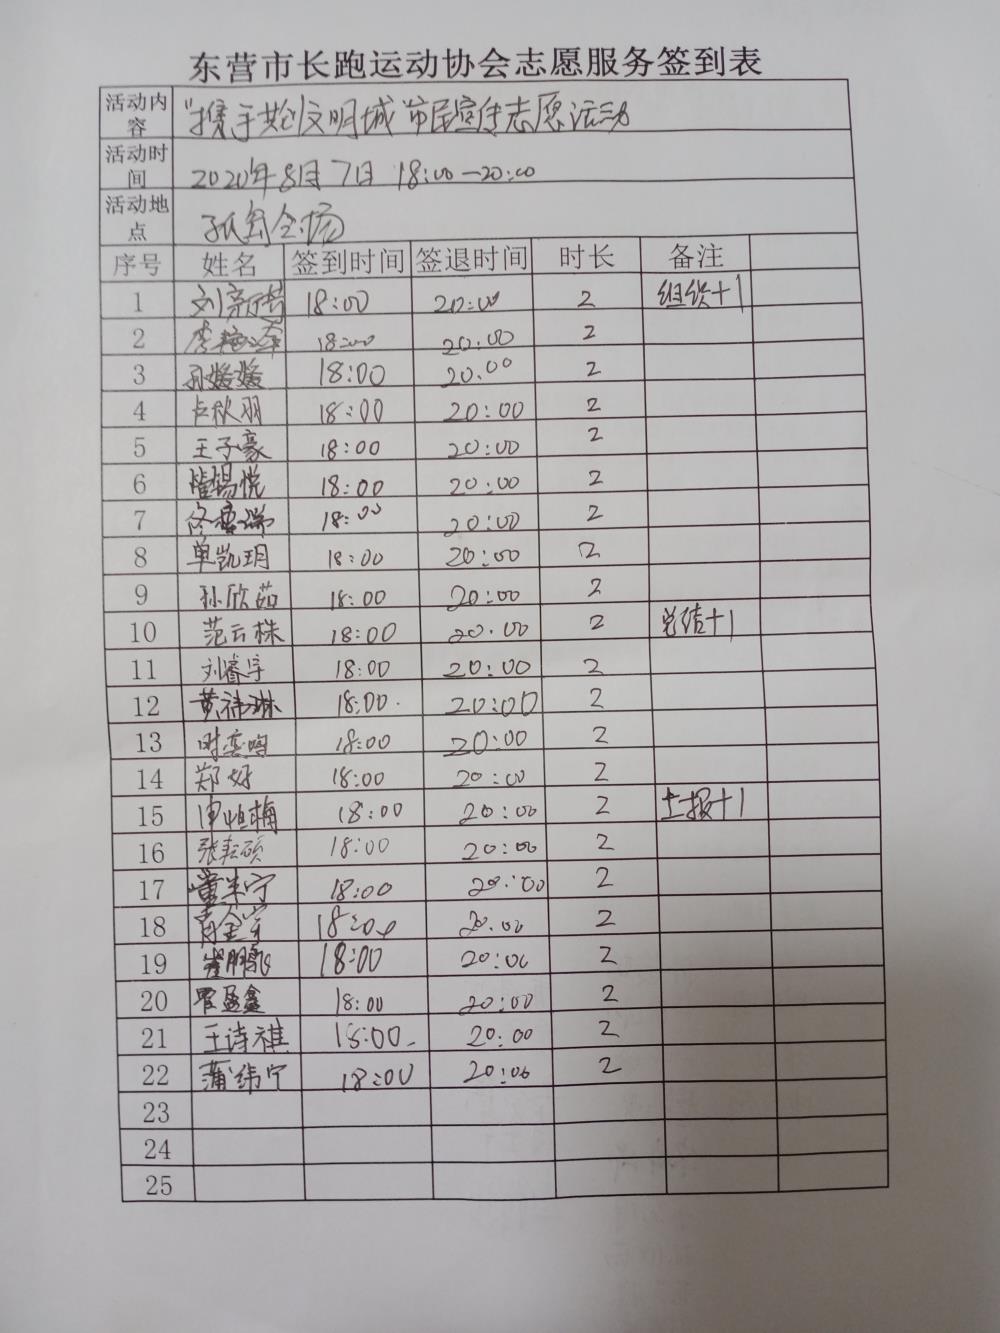 东营市长跑运动协会志愿服务签到表
活动内容 "携手共创文明城 市民宣传志愿活动
活动时间 2020年8月7日 18:00—20:00
活动地点 孤岛全场
序号 姓名 签到时间 签退时间 时长 备注
1 18:00 20:00 2 组织+1
2 18:00 20:00 2
3 孙媛媛 18:00 20.00 2
4 卢秋丽 18:00 20:00 2
5 王子豪 18:00 20:00 2
6 悦 18:00 20:00 2
7 18:00 20:00 2
8 单凯玥 18:00 20:00 2
9 孙欣茹 18:00 20:00 2
10 范云株 18:00 20.00 2 总结+1
11 刘睿宇 18:00 20:00 2
12 黄祎琳 18:00. 20:00 2
13 18:00 20:00 2
14 郑好 18:00 20:00 2
15 18:00 20:00 2 上报+1
16 张耘硕 18:00 20:00 2
17 董羊宁 18:00 20:00 2
18 18:00 20.00 2
19 崔鹏飞 18:00 20:00 2
20 18:00 20:00 2
21 王诗祺 18:00 20:00 2
22 蒲纬宁 18:00 20:00 2
23
24
25